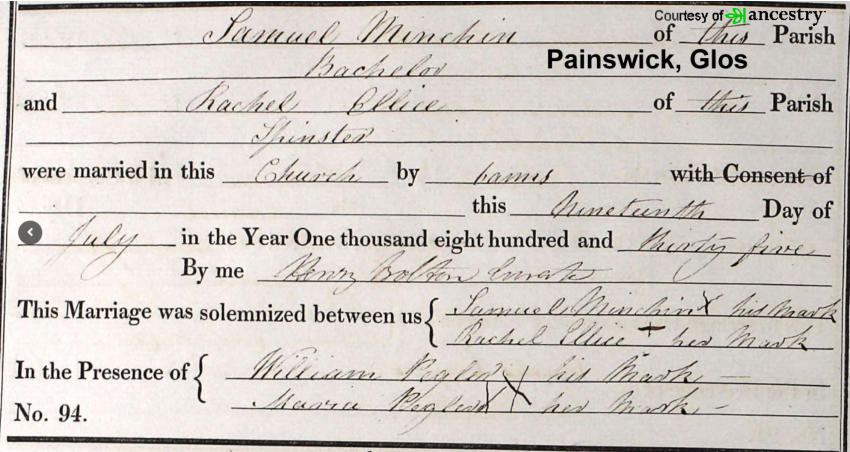 Courtesy of ancestry
Samuel Minchin of this Parish
Painswick, Glos
Bachelor
and Rachel Ellice of this Parish
Spinster
were married in this Church by banns with Consent of
this Nineteenth Day of
July in the Year One thousand eight hundred and thirty five
By me Henry Bolton Curate
This Marriage was solemnized between us { Samuel Minchin X his Mark
Rachel Ellice + her Mark
In the Presence of { William Pegler X his Mark
Maria Pegler X her Mark
No. 94.